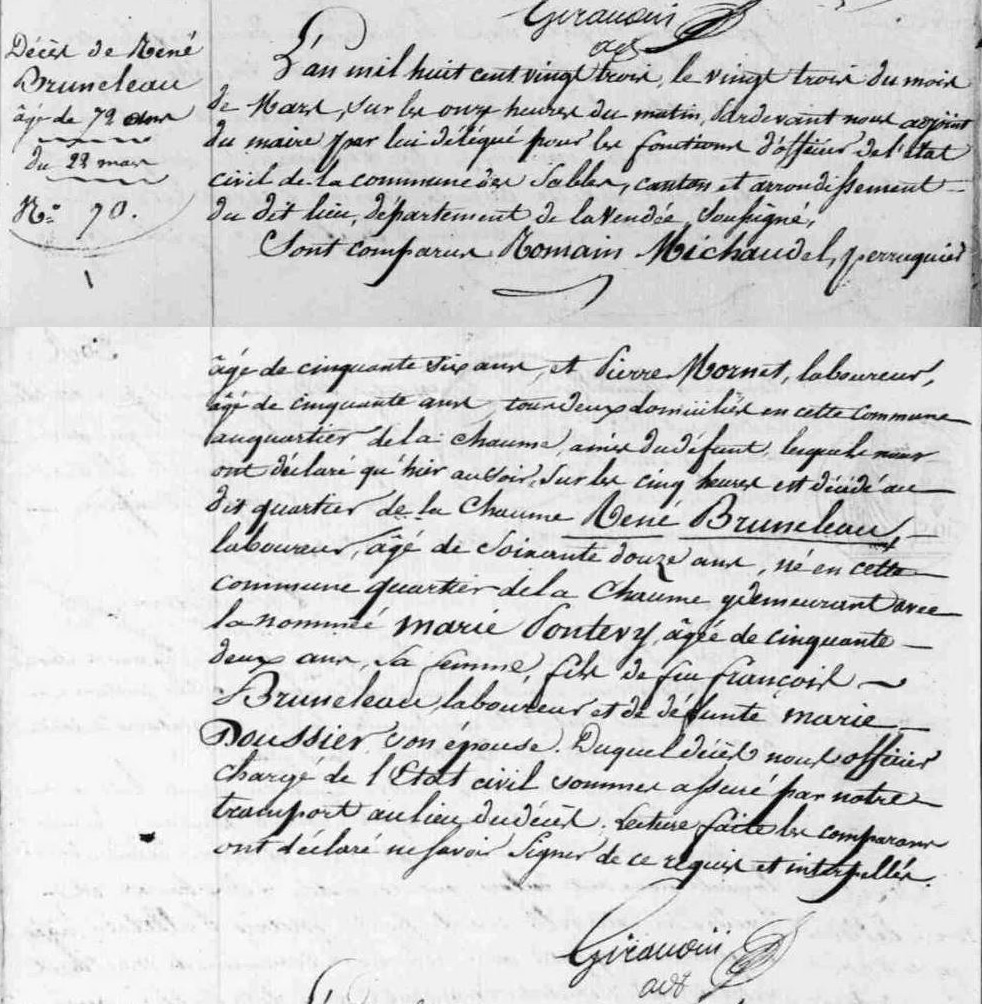 Girauoin
adj
Décès de René
Bruneleau
âgé de 72 ans
du 23 mars
N.º 70.
L'an mil huit cent vingt trois, le vingt trois du mois
de Mars, sur les onze heures du matin, Pardevant nous adjoint
du maire par lui délégué pour les fonctions d'officier de l'état
civil de la commune des Sables, canton et arrondissement
du dit lieu, département de la Vendée, soussigné,
Sont comparus Romain Michaudel, perruquier
âgé de cinquante six ans, et Pierre Mornet, laboureur,
âgé de cinquante ans tous deux domiciliés en cette commune
au quartier de la chaume, amis du défunt, lesquels nous
ont déclaré qu'hier au soir, sur les cinq heures est décédé au
dit quartier de la Chaume René Bruneleau,
laboureur, âgé de soixante douze ans, né en cette
commune quartier de la Chaume y demeurant avec
la nommée Marie Pontevy, âgée de cinquante
deux ans, sa femme, fils de feu françois
Bruneleau, laboureur et de défunte marie
Doussier son épouse. Duquel décès nous officier
chargé de l'Etat civil sommes assuré par notre
transport au lieu du décès. Lecture faite les comparans
ont déclaré ne savoir signer de ce requis et interpellés.
Girauoin
adj